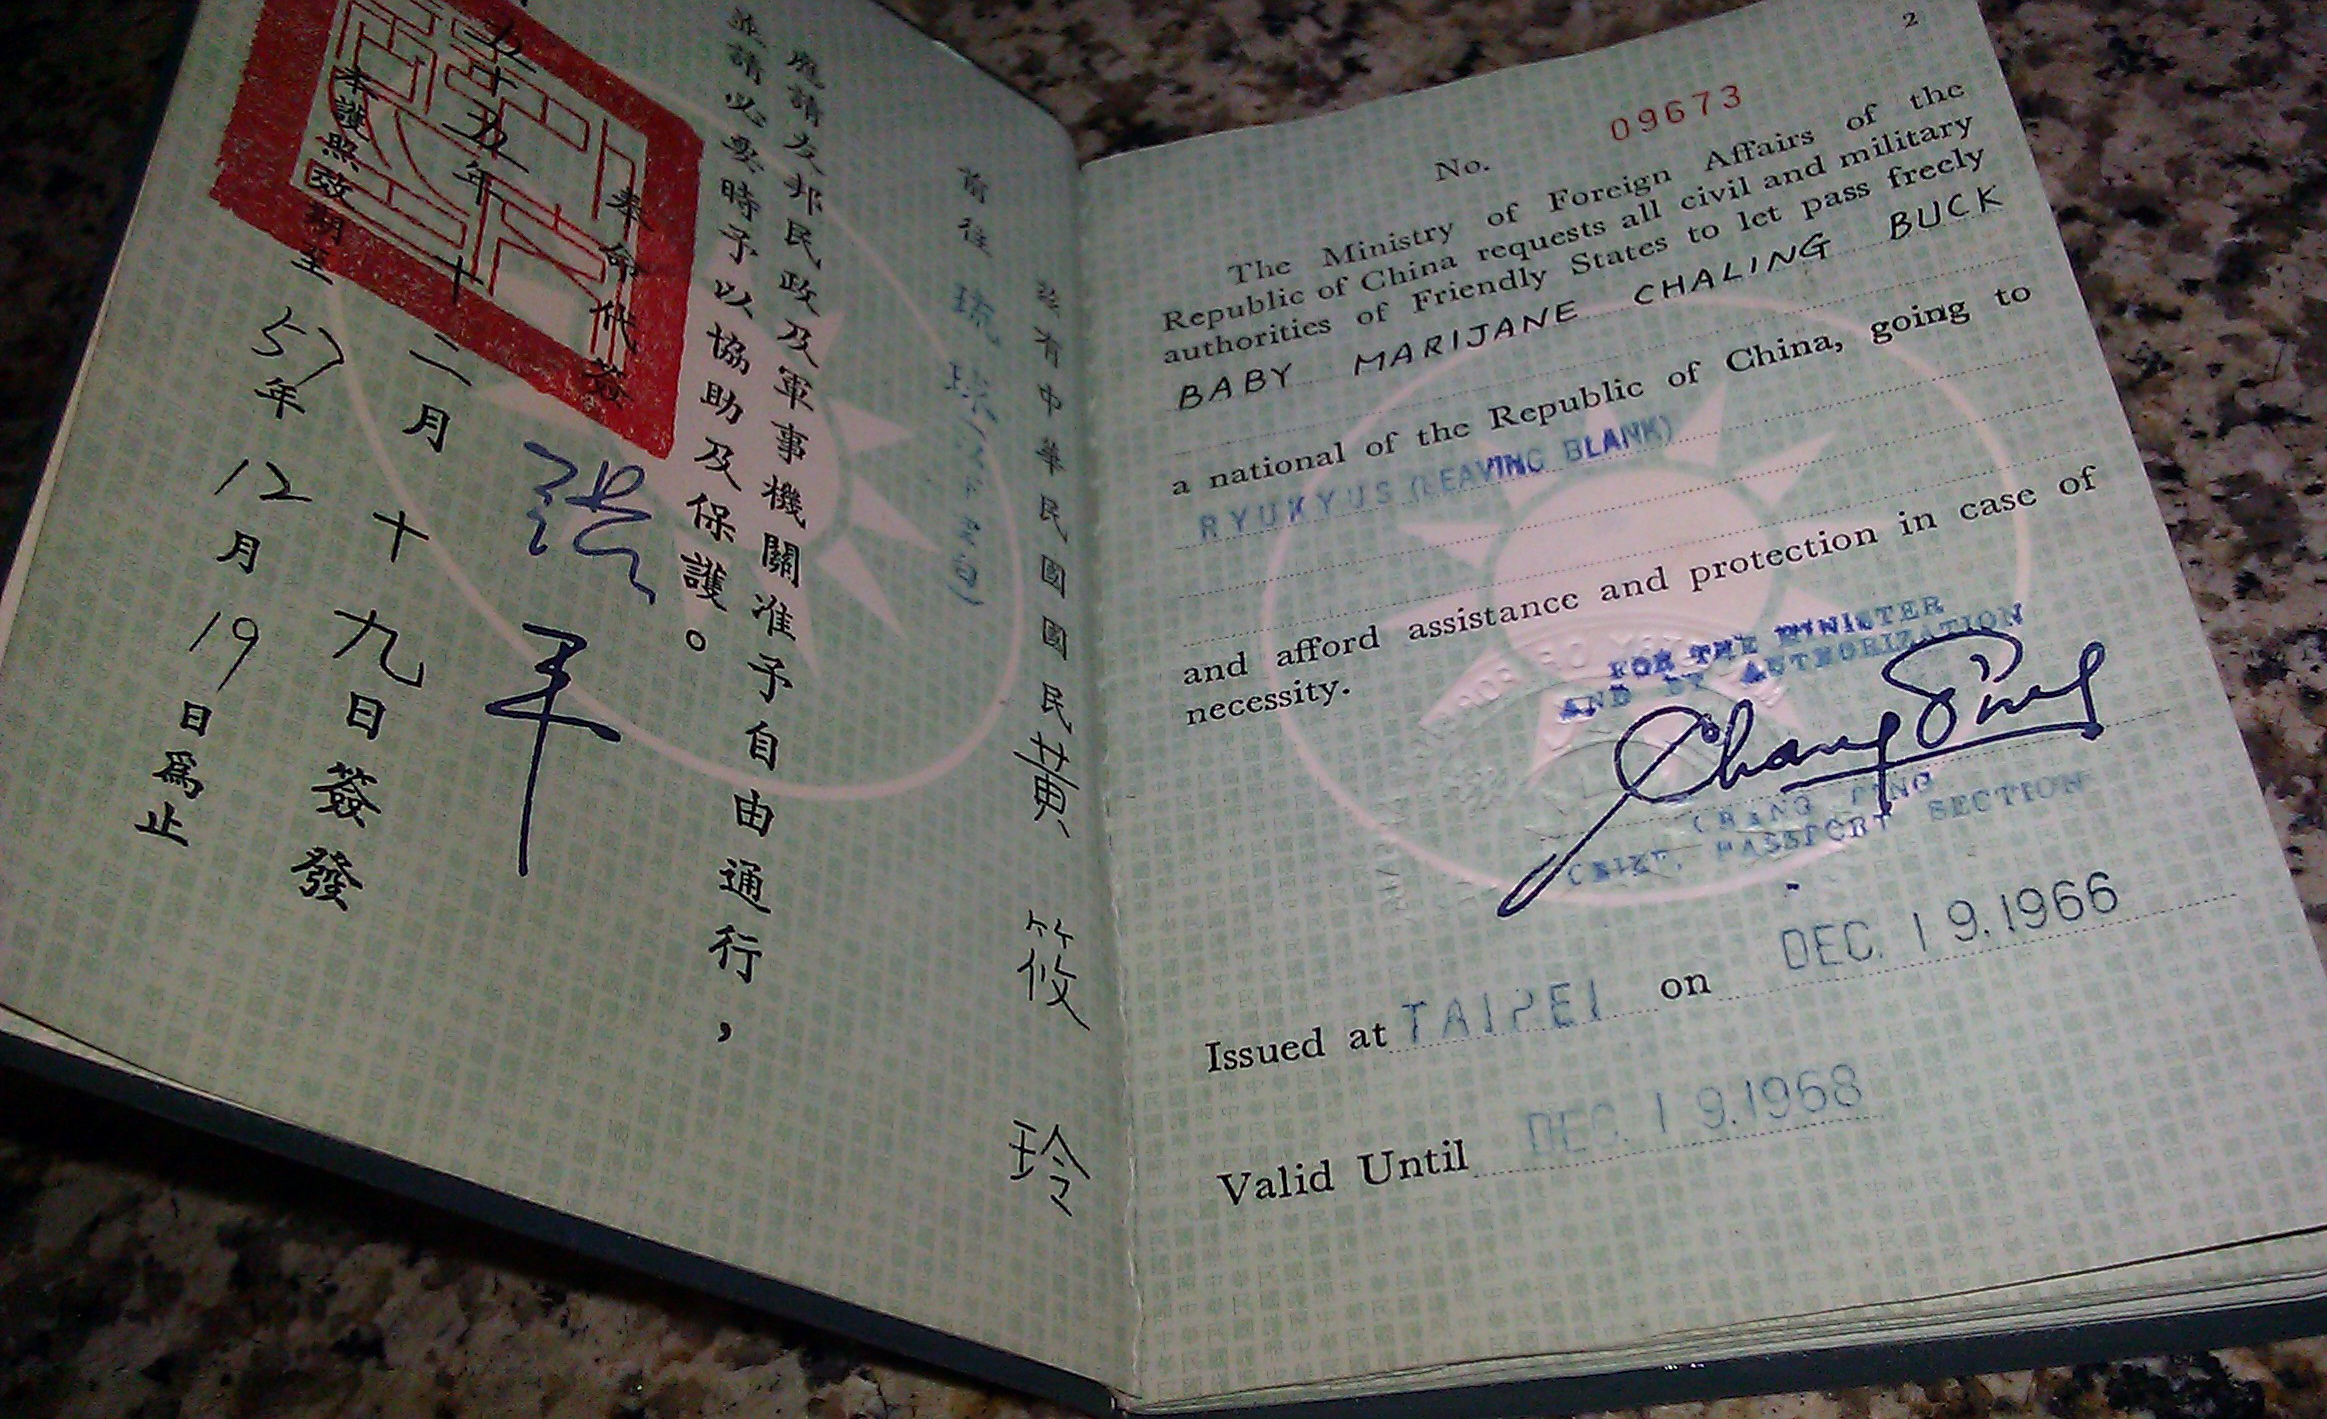 茲有中華民國國民黃筱玲
前往琉球
應請友邦民政及軍事機關准予自由通行,
並請必要時予以協助及保護。
奉命代簽
五十五年十二月十九日簽發
本護照效期至57年12月19日為止
2
No. 09673
The Ministry of Foreign Affairs of the
Republic of China requests all civil and military
authorities of Friendly States to let pass freely
BABY MARIJANE CHALING BUCK
a national of the Republic of China, going to
RYUKYUS (LEAVING BLANK)
and afford assistance and protection in case of
necessity.
FOR THE MINISTER
AND BY AUTHORIZATION
Chang Ping
CHANG PING
CHIEF, PASSPORT SECTION
Issued at TAIPEI on DEC. 19. 1966
Valid Until DEC. 19. 1968